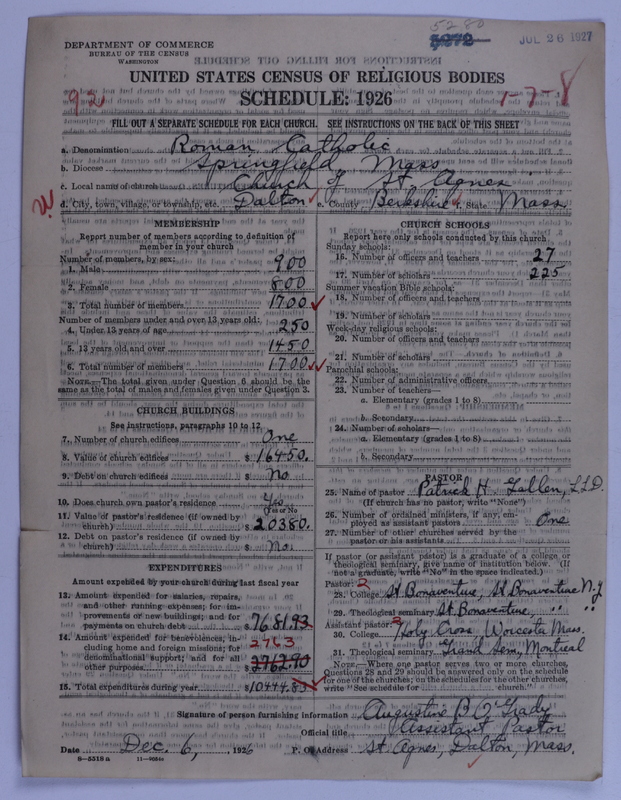 5280
5272
JUL 26 1927
DEPARTMENT OF COMMERCE
BUREAU OF THE CENSUS
WASHINGTON
UNITED STATES CENSUS OF RELIGIOUS BODIES
92
SCHEDULE: 1926
1-7-8
FILL OUT A SEPARATE SCHEDULE FOR EACH CHURCH. SEE INSTRUCTIONS ON THE BACK OF THIS SHEET
a. Denomination Roman Catholic
b. Diocese Springfield Mass
c. Local name of church Church of St Agnes
d. City, town, village, or township, etc. Dalton e. County Berkshire f. State Mass.
MEMBERSHIP
Report number of members according to definition of
member in your church
Number of members, by sex:
1. Male 900
2. Female 800
3. Total number of members 1700
Number of members under and over 13 years old:
4. Under 13 years of age 250
5. 13 years old and over 1450
6. Total number of members 1700
NOTE.—The total given under Question 6 should be the
same as the total of males and females given under Question 3.
CHURCH BUILDINGS
See instructions, paragraphs 10 to 12
7. Number of church edifices One
8. Value of church edifices $ 16450.
9. Debt on church edifices $ No
10. Does church own pastor's residence Yes
(Yes or No)
11. Value of pastor's residence (if owned by
church) $ 20380.
12. Debt on pastor's residence (if owned by
church) $ No.
EXPENDITURES
Amount expended by your church during last fiscal year
13. Amount expended for salaries, repairs,
and other running expenses; for im-
provements or new buildings; and for
payments on church debt $ 7681.93
14. Amount expended for benevolences, in-
cluding home and foreign missions; for
denominational support; and for all
other purposes 2763
$ 2762.90
15. Total expenditures during year $ 10444.83
CHURCH SCHOOLS
Report here only schools conducted by this church
Sunday schools:
16. Number of officers and teachers 27
17. Number of scholars 225
Summer vacation Bible schools:
18. Number of officers and teachers
19. Number of scholars
Week-day religious schools:
20. Number of officers and teachers
21. Number of scholars
Parochial schools:
22. Number of administrative officers
23. Number of teachers—
a. Elementary (grades 1 to 8)
b. Secondary
24. Number of scholars—
a. Elementary (grades 1 to 8)
b. Secondary
PASTOR
25. Name of pastor Patrick H. Gallen, LLD.
(If church has no pastor, write "None")
26. Number of ordained ministers, if any, em-
ployed as assistant pastors One
27. Number of other churches served by the
pastor or his assistants
If pastor (or assistant pastor) is a graduate of a college or
theological seminary, give name of institution below. (If
not a graduate, write "No" in the space indicated.)
Pastor: 2
28. College St Bonaventure, St Bonaventure N.Y
29. Theological seminary St Bonaventure, " "
Assistant pastor: 2
30. College Holy Cross, Worcester Mass.
31. Theological seminary Grand Sem, Montreal
NOTE.—Where one pastor serves two or more churches,
Questions 28 and 29 should be answered only on the schedule
for one of the churches; on the schedules for the other churches,
write "See schedule for church."
Signature of person furnishing information Augustine B O'Grady
Official title Assistant Pastor
Date Dec. 6, 1926 P. O. Address St Agnes, Dalton, Mass.
8—5518a 11—9684a